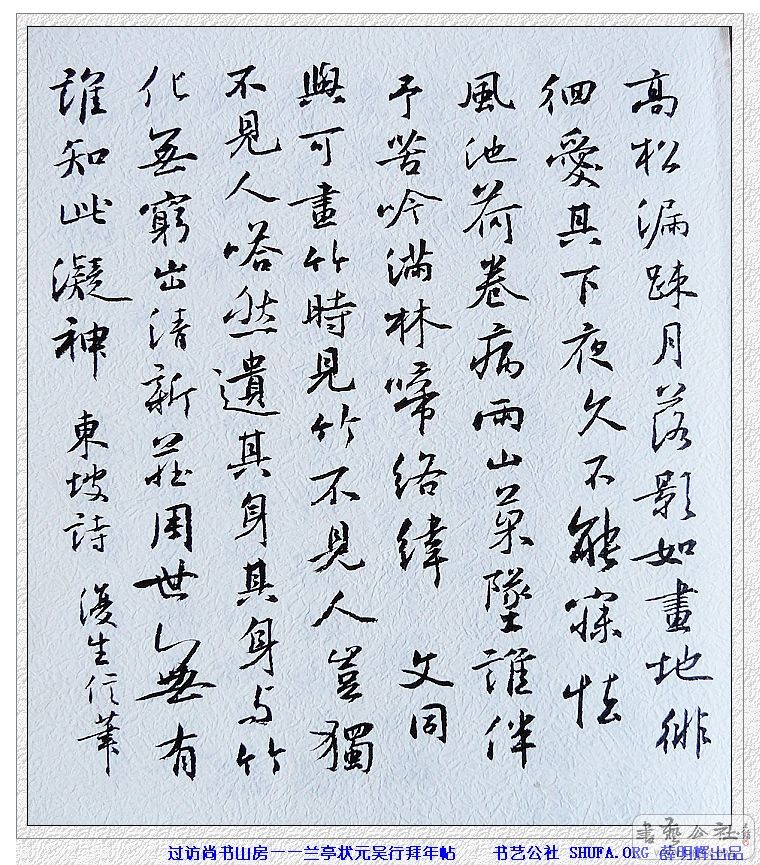 高松漏疎月落影如畫地徘
徊愛其下夜久不能寐怯
風池荷卷病雨山菓墜誰伴
予苦吟滿林啼絡緯 文同
與可畫竹時見竹不見人豈獨
不見人嗒然遺其身其身与竹
化無窮出清新莊周世無有
誰知此凝神 東坡詩 生信筆
書藝公社
过访尚书山房——兰亭状元吴行拜年帖 书艺公社 SHUFA.ORG 薛明辉出品